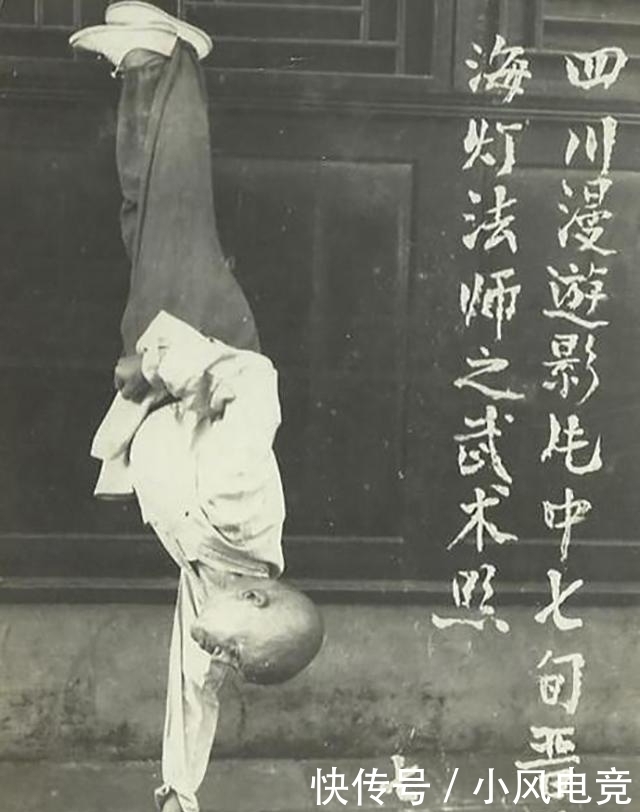 四川漫遊影片中七旬晋
海灯法师之武术照
快传号 / 小风电竞